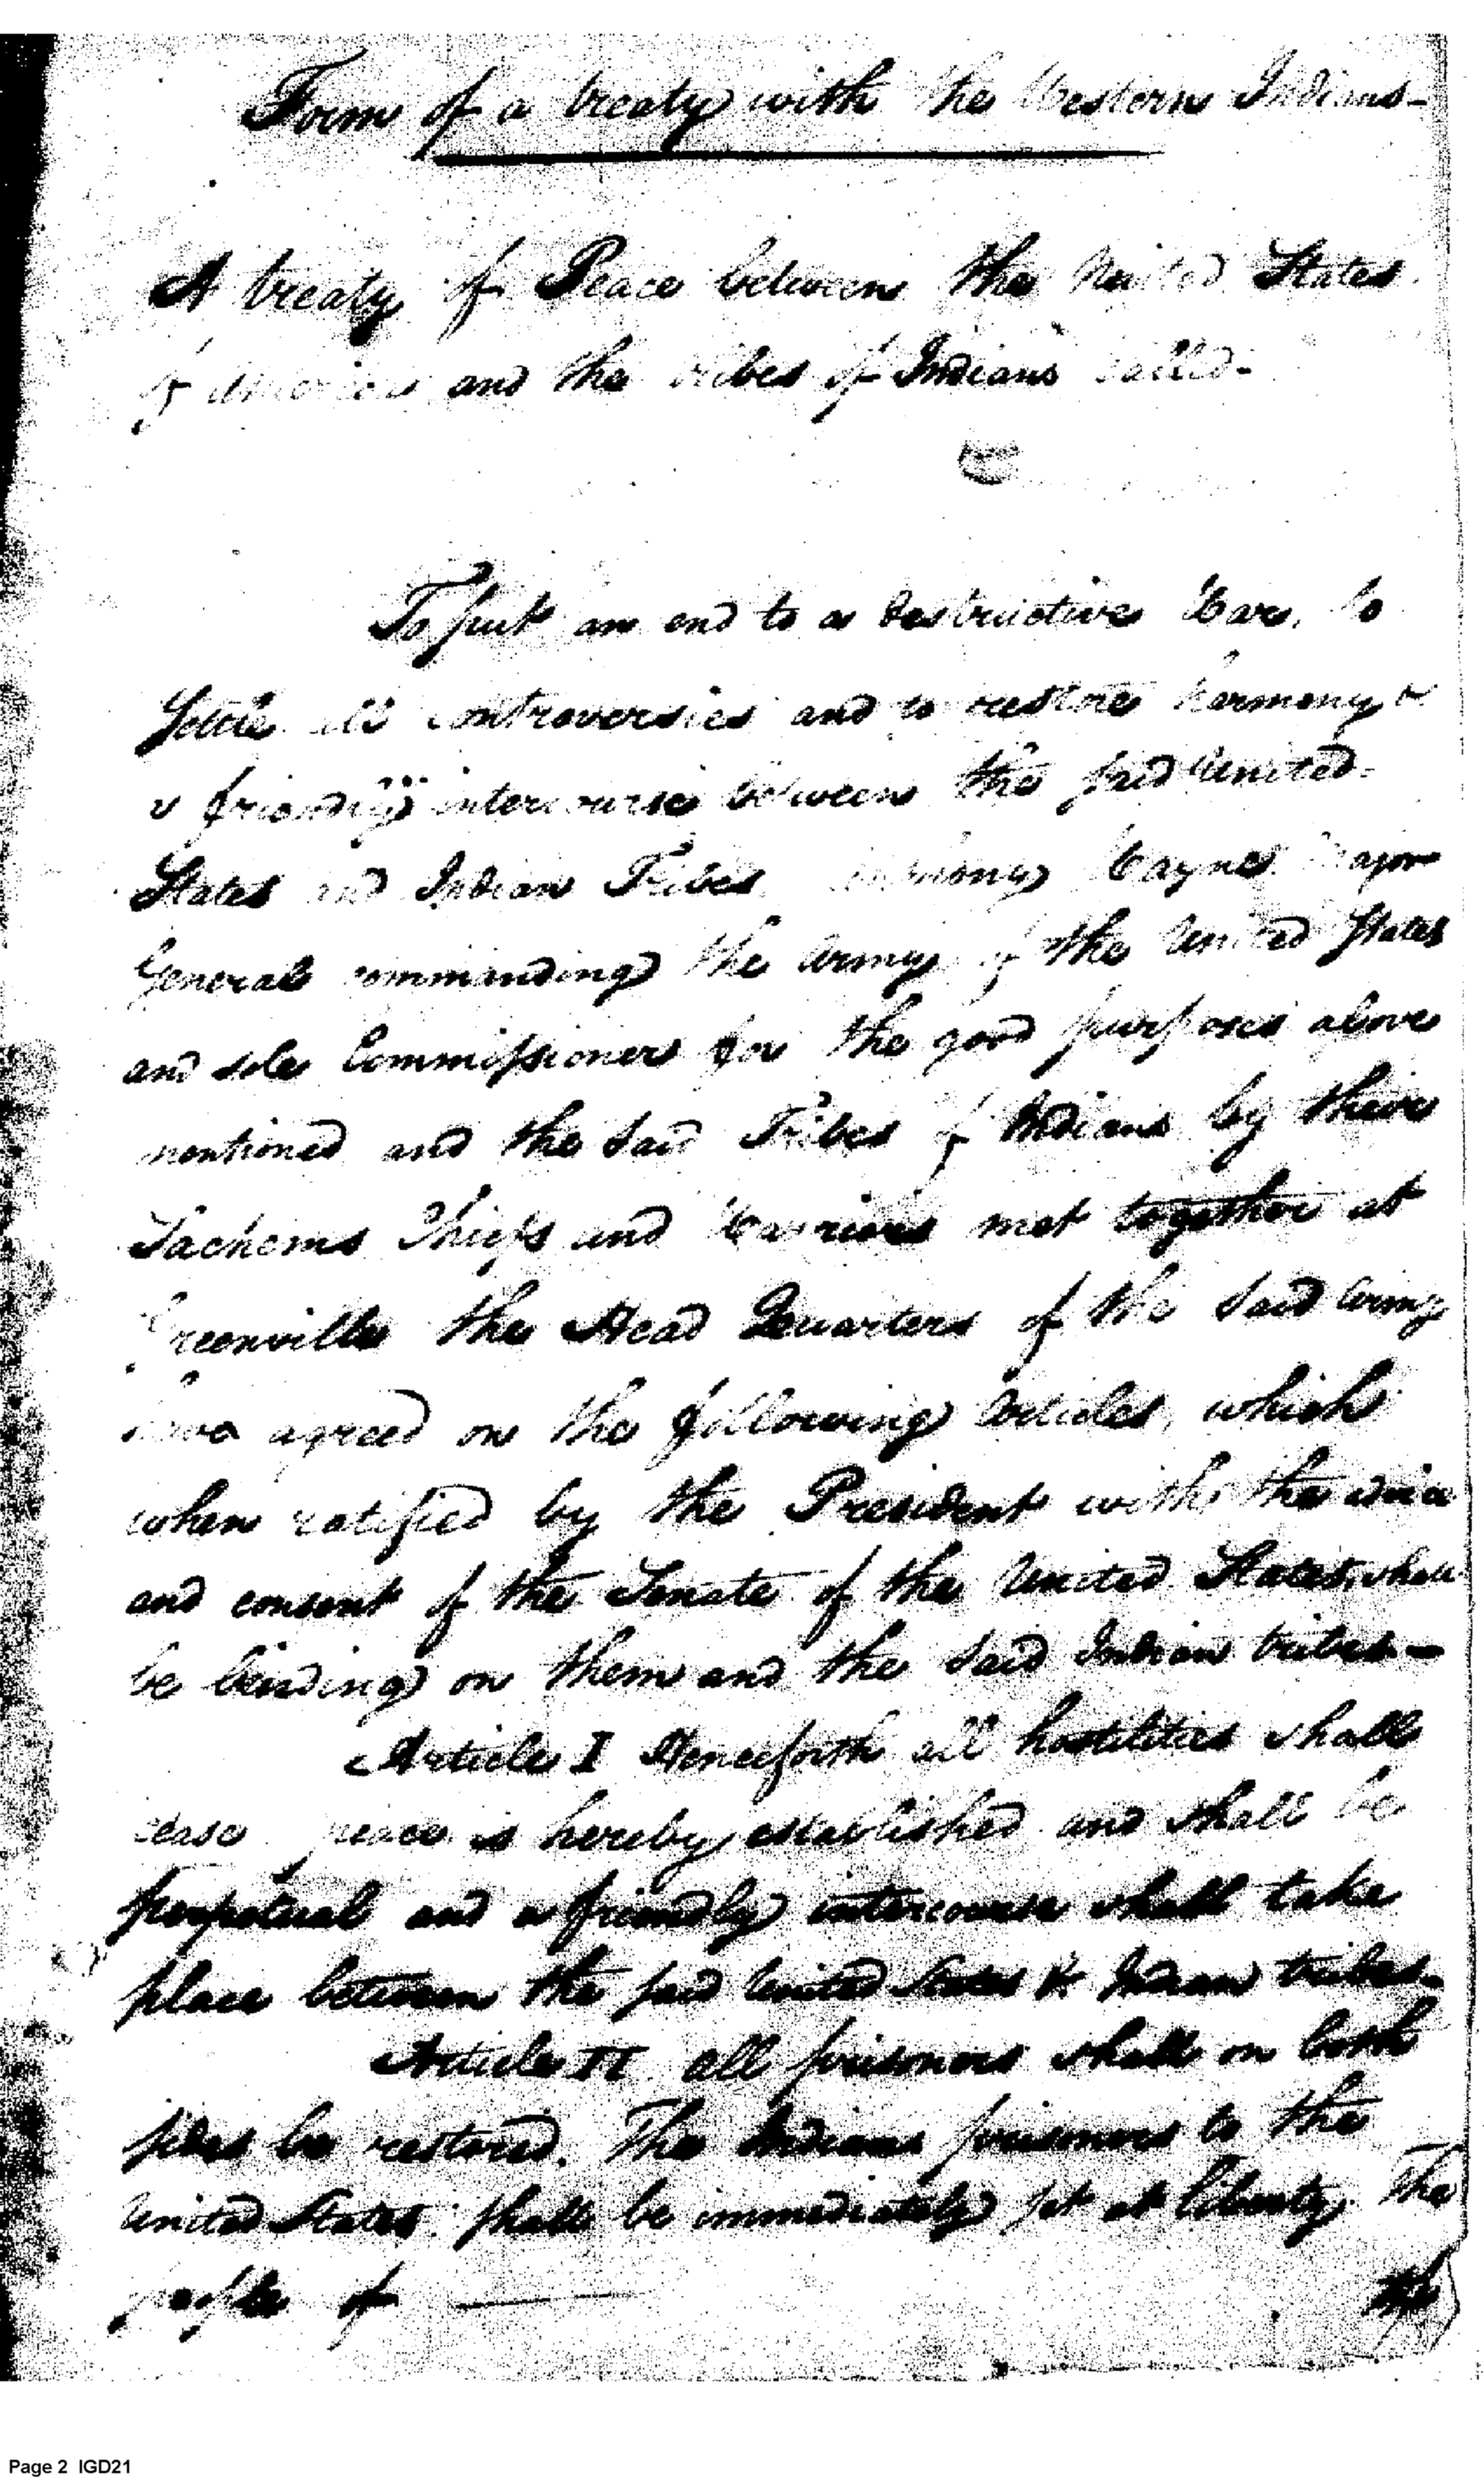 Form of a treaty with the Western Indians-
A treaty of Peace between the United States
of America and the tribes of Indians called-
To put an end to a destructive War, to
Settle all controversies and to restore harmony &
a friendly intercourse between the said United
States and Indian Tribes Anthony Wayne Major
General commanding the Army of the United States
and sole Commissioner for the good purposes above
mentioned and the Said Tribes of Indians by their
Sachems Chiefs and Warriors met together at
Greenville the Head Quarters of the Said Army
have agreed on the following Articles, which
when ratified by the President with the advice
and consent of the Senate of the United States, shall
be binding on them and the Said Indian tribes-
Article I Henceforth all hostilities shall
cease peace is hereby established and shall be
perpetual and a friendly intercourse shall take
place between the said United States & Indian tribes-
Article II all prisoners shall on both
sides be restored. The Indians prisoners to the
United States shall be immediately set at liberty. The
people of ———
the
Page 2 IGD21